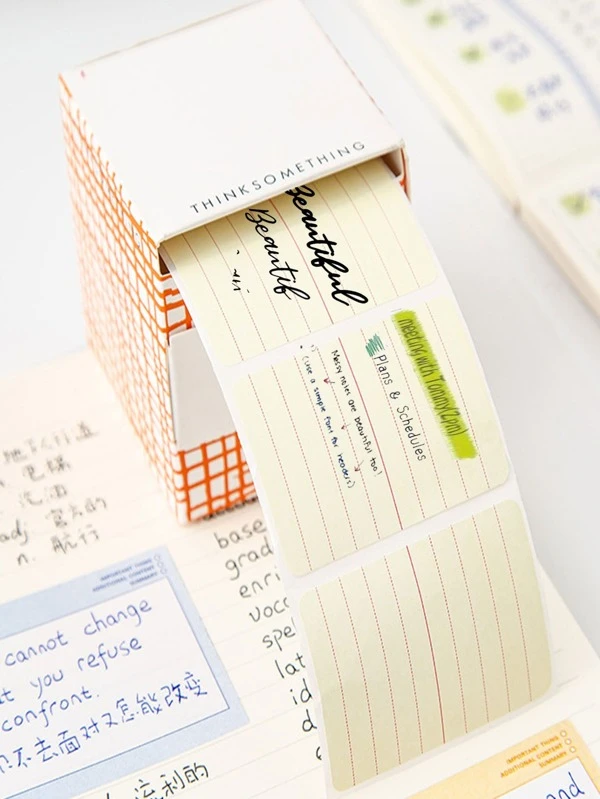 THINKSOMETHING
Beautiful
Beautif
meeting with Tommy(2pm)
Plans & Schedules
Messy notes are beautiful too!
(use a simple font for headers)
adj. 官方的
n. 航行
base
grad
enri
voca
spel
lat
id
d
IMPORTANT THING
ADDITIONAL CONTENT
SUMMARY
cannot change
you refuse
confront.
不去面对又怎能改变
流利的
IMPORTANT THING
ADDITIONAL CONTENT
SUMMARY
and